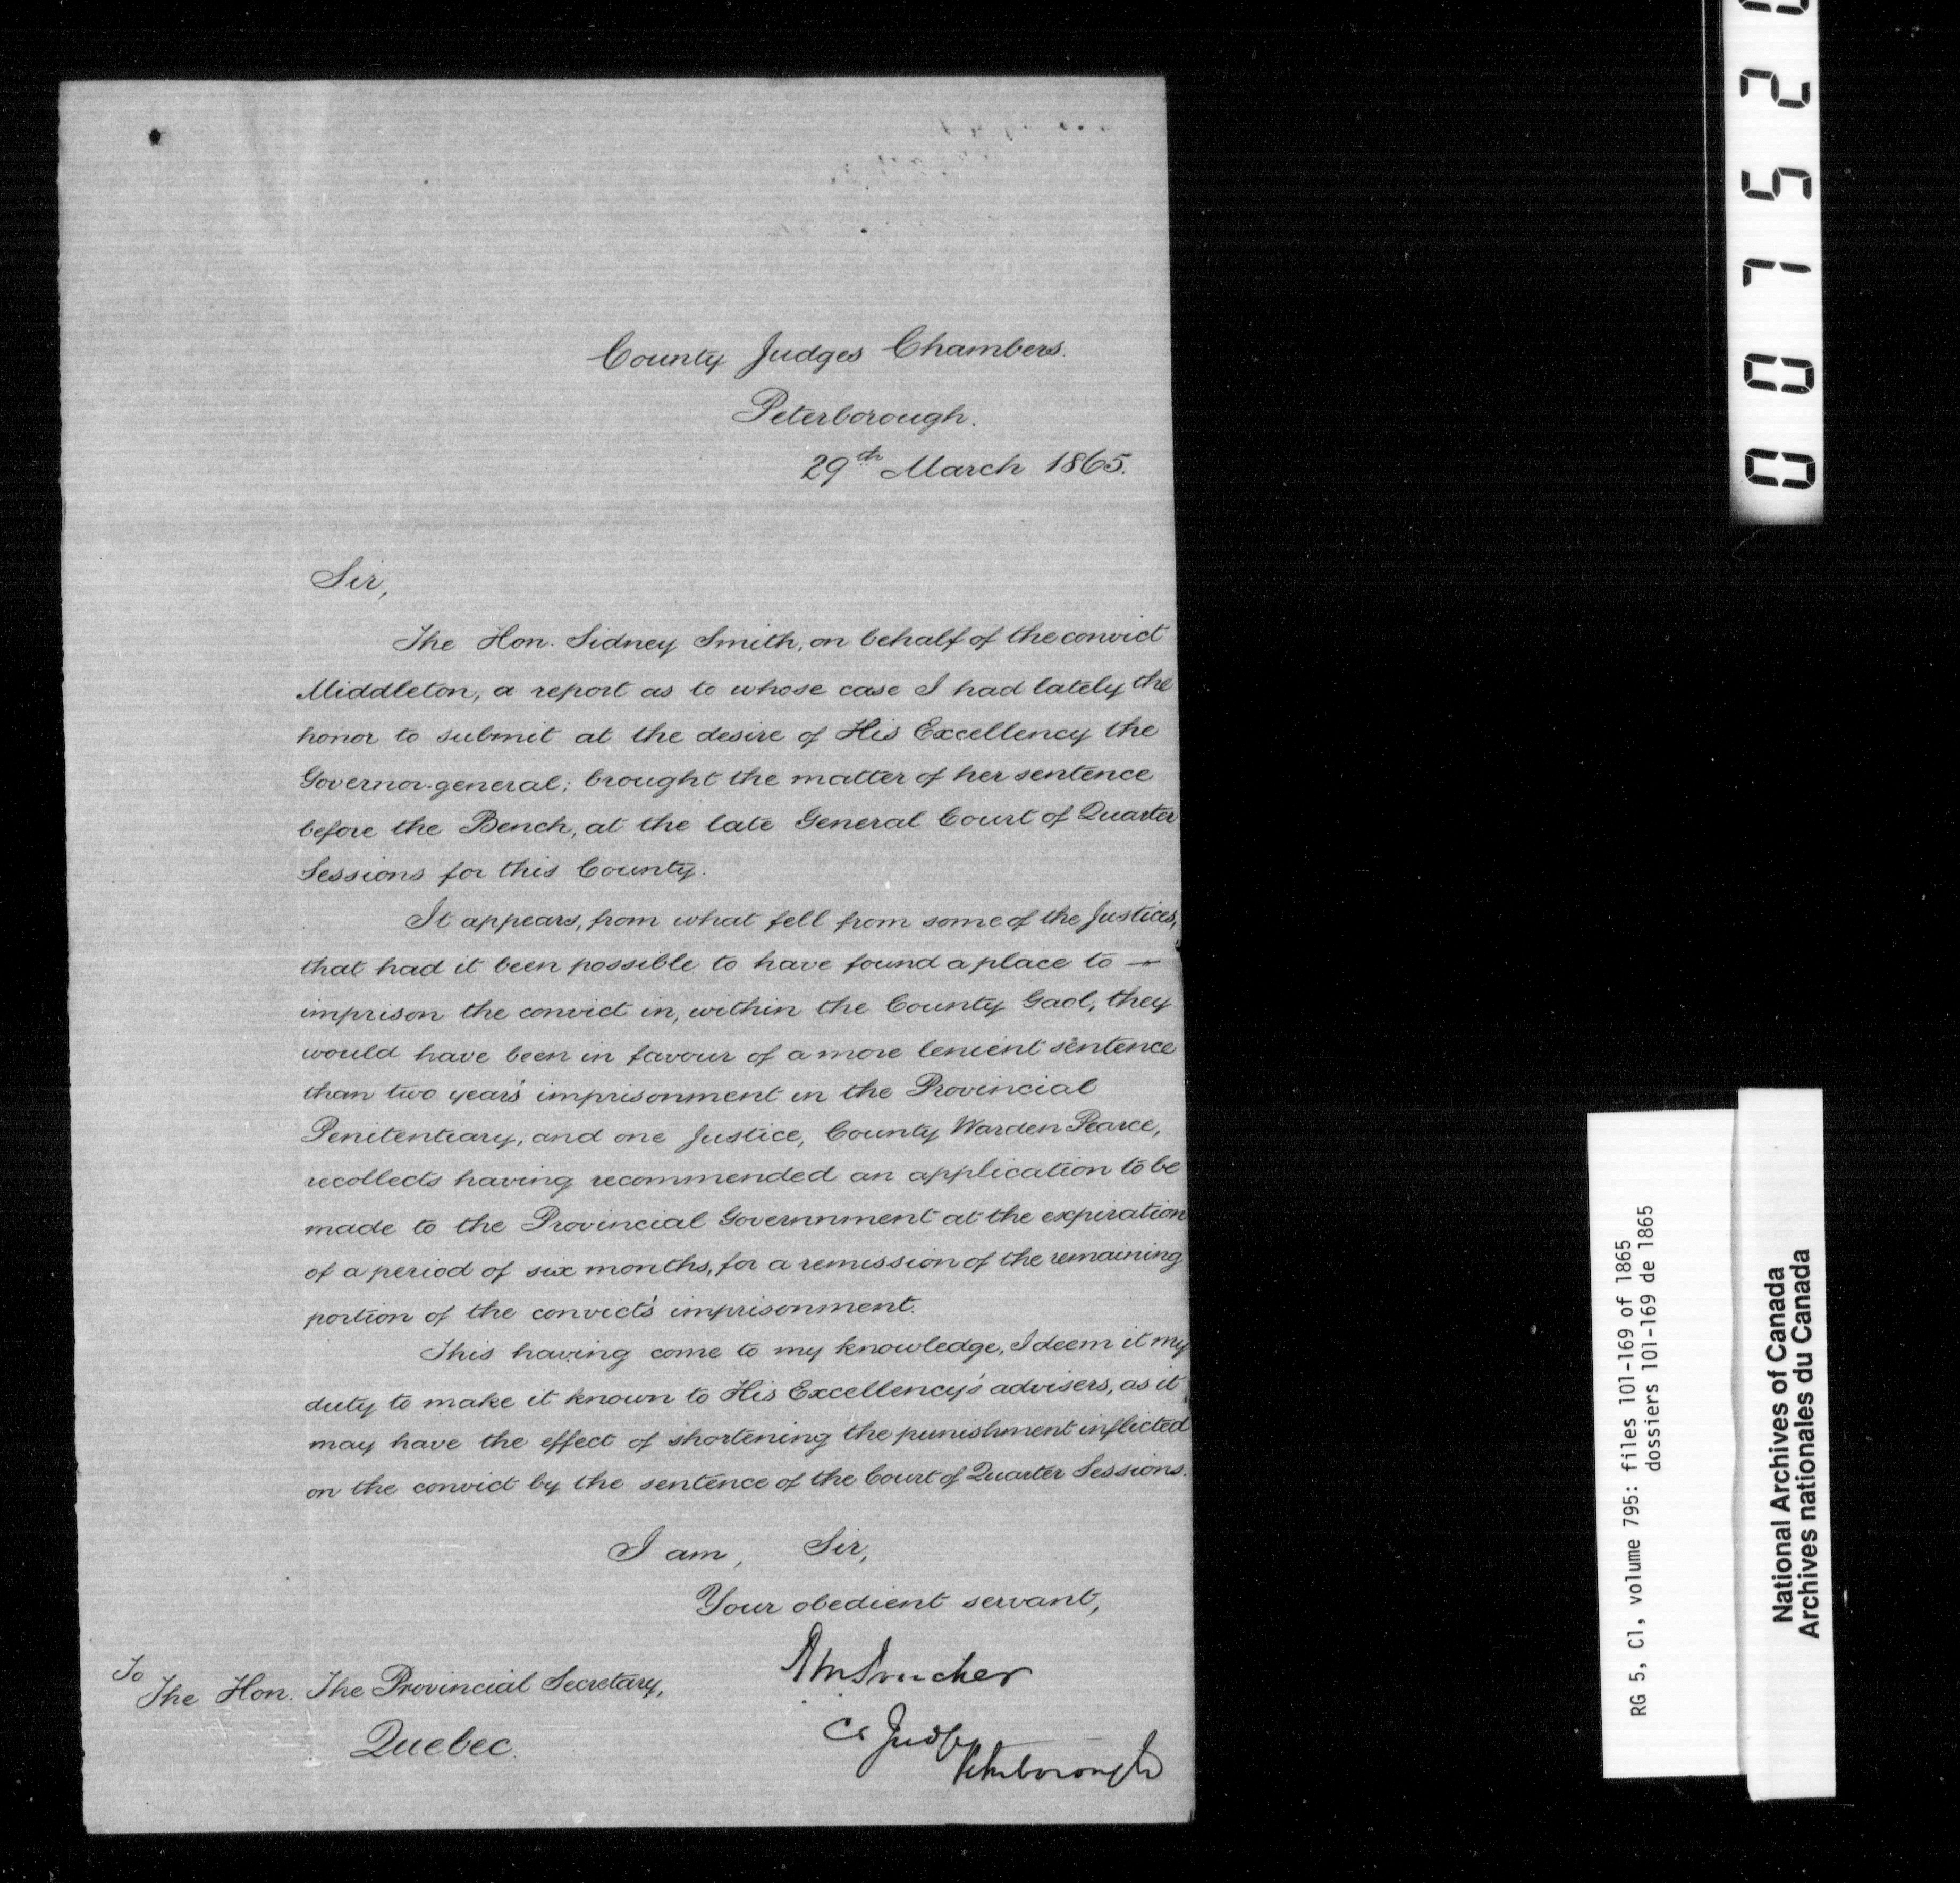 County Judges Chambers.
Peterborough.
29th March 1865.
Sir,
The Hon. Sidney Smith, on behalf of the convict
Middleton, a report as to whose case I had lately the
honor to submit at the desire of His Excellency the
Governor-general; brought the matter of her sentence
before the Bench, at the late General Court of Quarter
Sessions for this County.
It appears, from what fell from some of the Justices,
that had it been possible to have found a place to —
imprison the convict in, within the County Gaol, they
would have been in favour of a more lenient sentence
than two year's imprisonment in the Provincial
Penitentiary, and one Justice, County Warden Pearce,
recollects having recommended an application to be
made to the Provincial Governnment at the expiration
of a period of six months, for a remission of the remaining
portion of the convict's imprisonment.
This having come to my knowledge, I deem it my
duty to make it known to His Excellency's advisers, as it
may have the effect of shortening the punishment inflicted
on the convict by the sentence of the Court of Quarter Sessions.
I am, Sir,
Your obedient servant,
Co Judge
Peterborough
To
The Hon. The Provincial Secretary,
Quebec.
007520
RG 5, C1, volume 795: files 101-169 of 1865
dossiers 101-169 de 1865
National Archives of Canada
Archives nationales du Canada